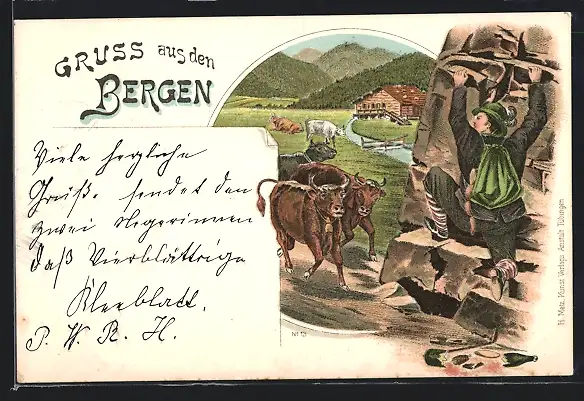 GRUSS aus den
BERGEN
Viele herzliche
Grüße sendet den
zwei Negerinnen
daß Vierblättrige
Kleeblatt.
P. W. R. H.
No 13
H. Metz, Kunst Verlags Anstalt Tübingen